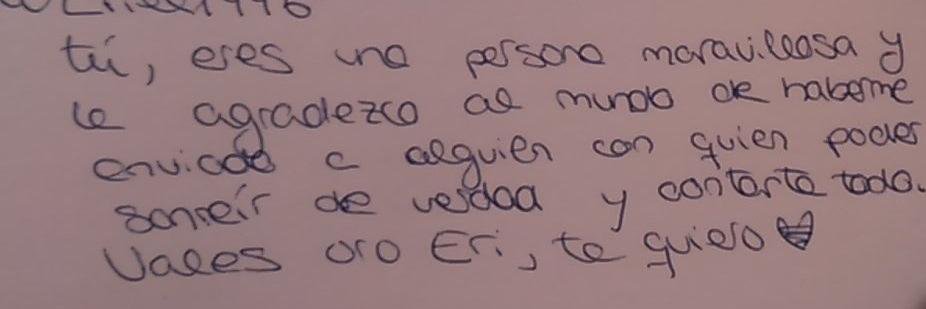 tú, eres una persona maravillosa y
le agradezco al mundo de haberme
enviado a alguien con quien poder
sonreír de verdad y contarte todo.
Vales oro Eri, te quiero